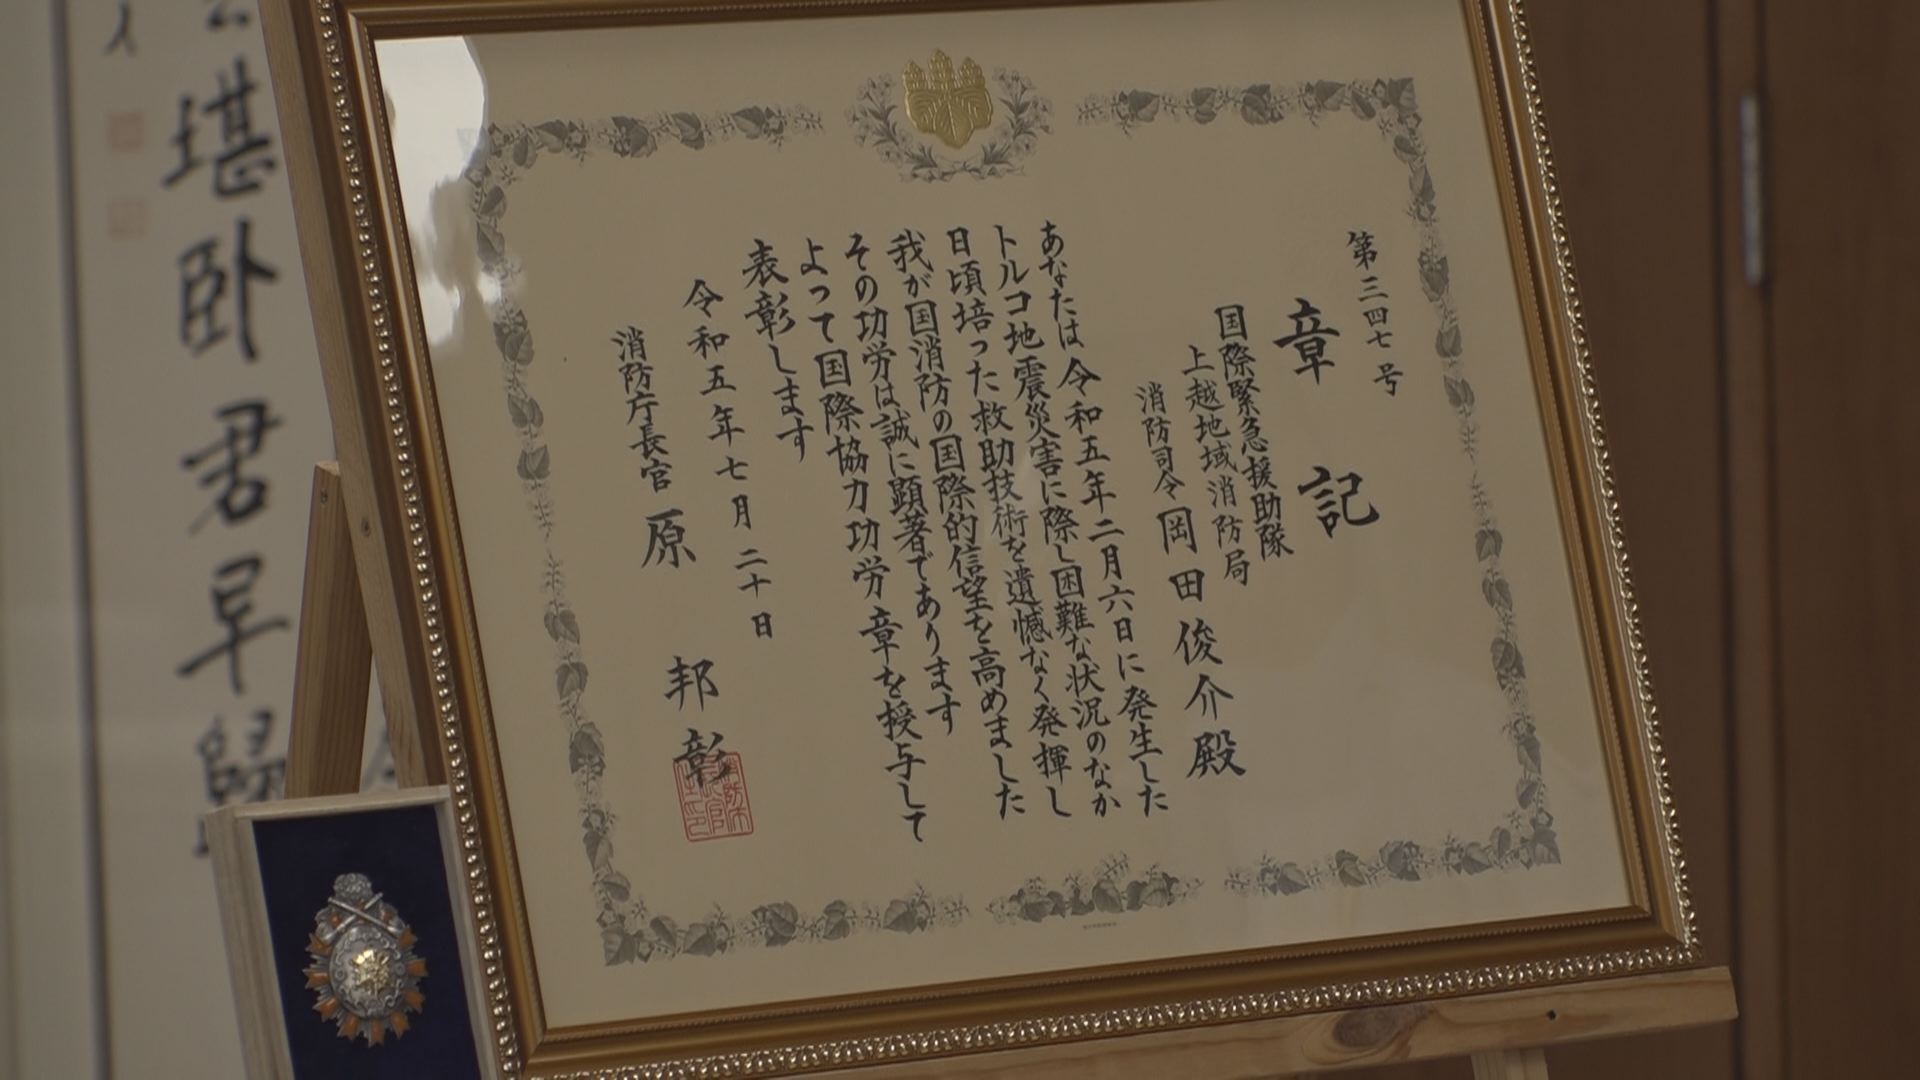 第三四七号
章記
国際緊急援助隊
上越地域消防局
消防司令 岡田俊介殿
あなたは令和五年二月六日に発生した
トルコ地震災害に際し困難な状況のなか
日頃培った救助技術を遺憾なく発揮し
我が国消防の国際的信望を高めました
その功労は誠に顕著であります
よって国際協力功労章を授与して
表彰します
令和五年七月二十日
消防庁長官 原 邦彰
堪卧君早歸
人